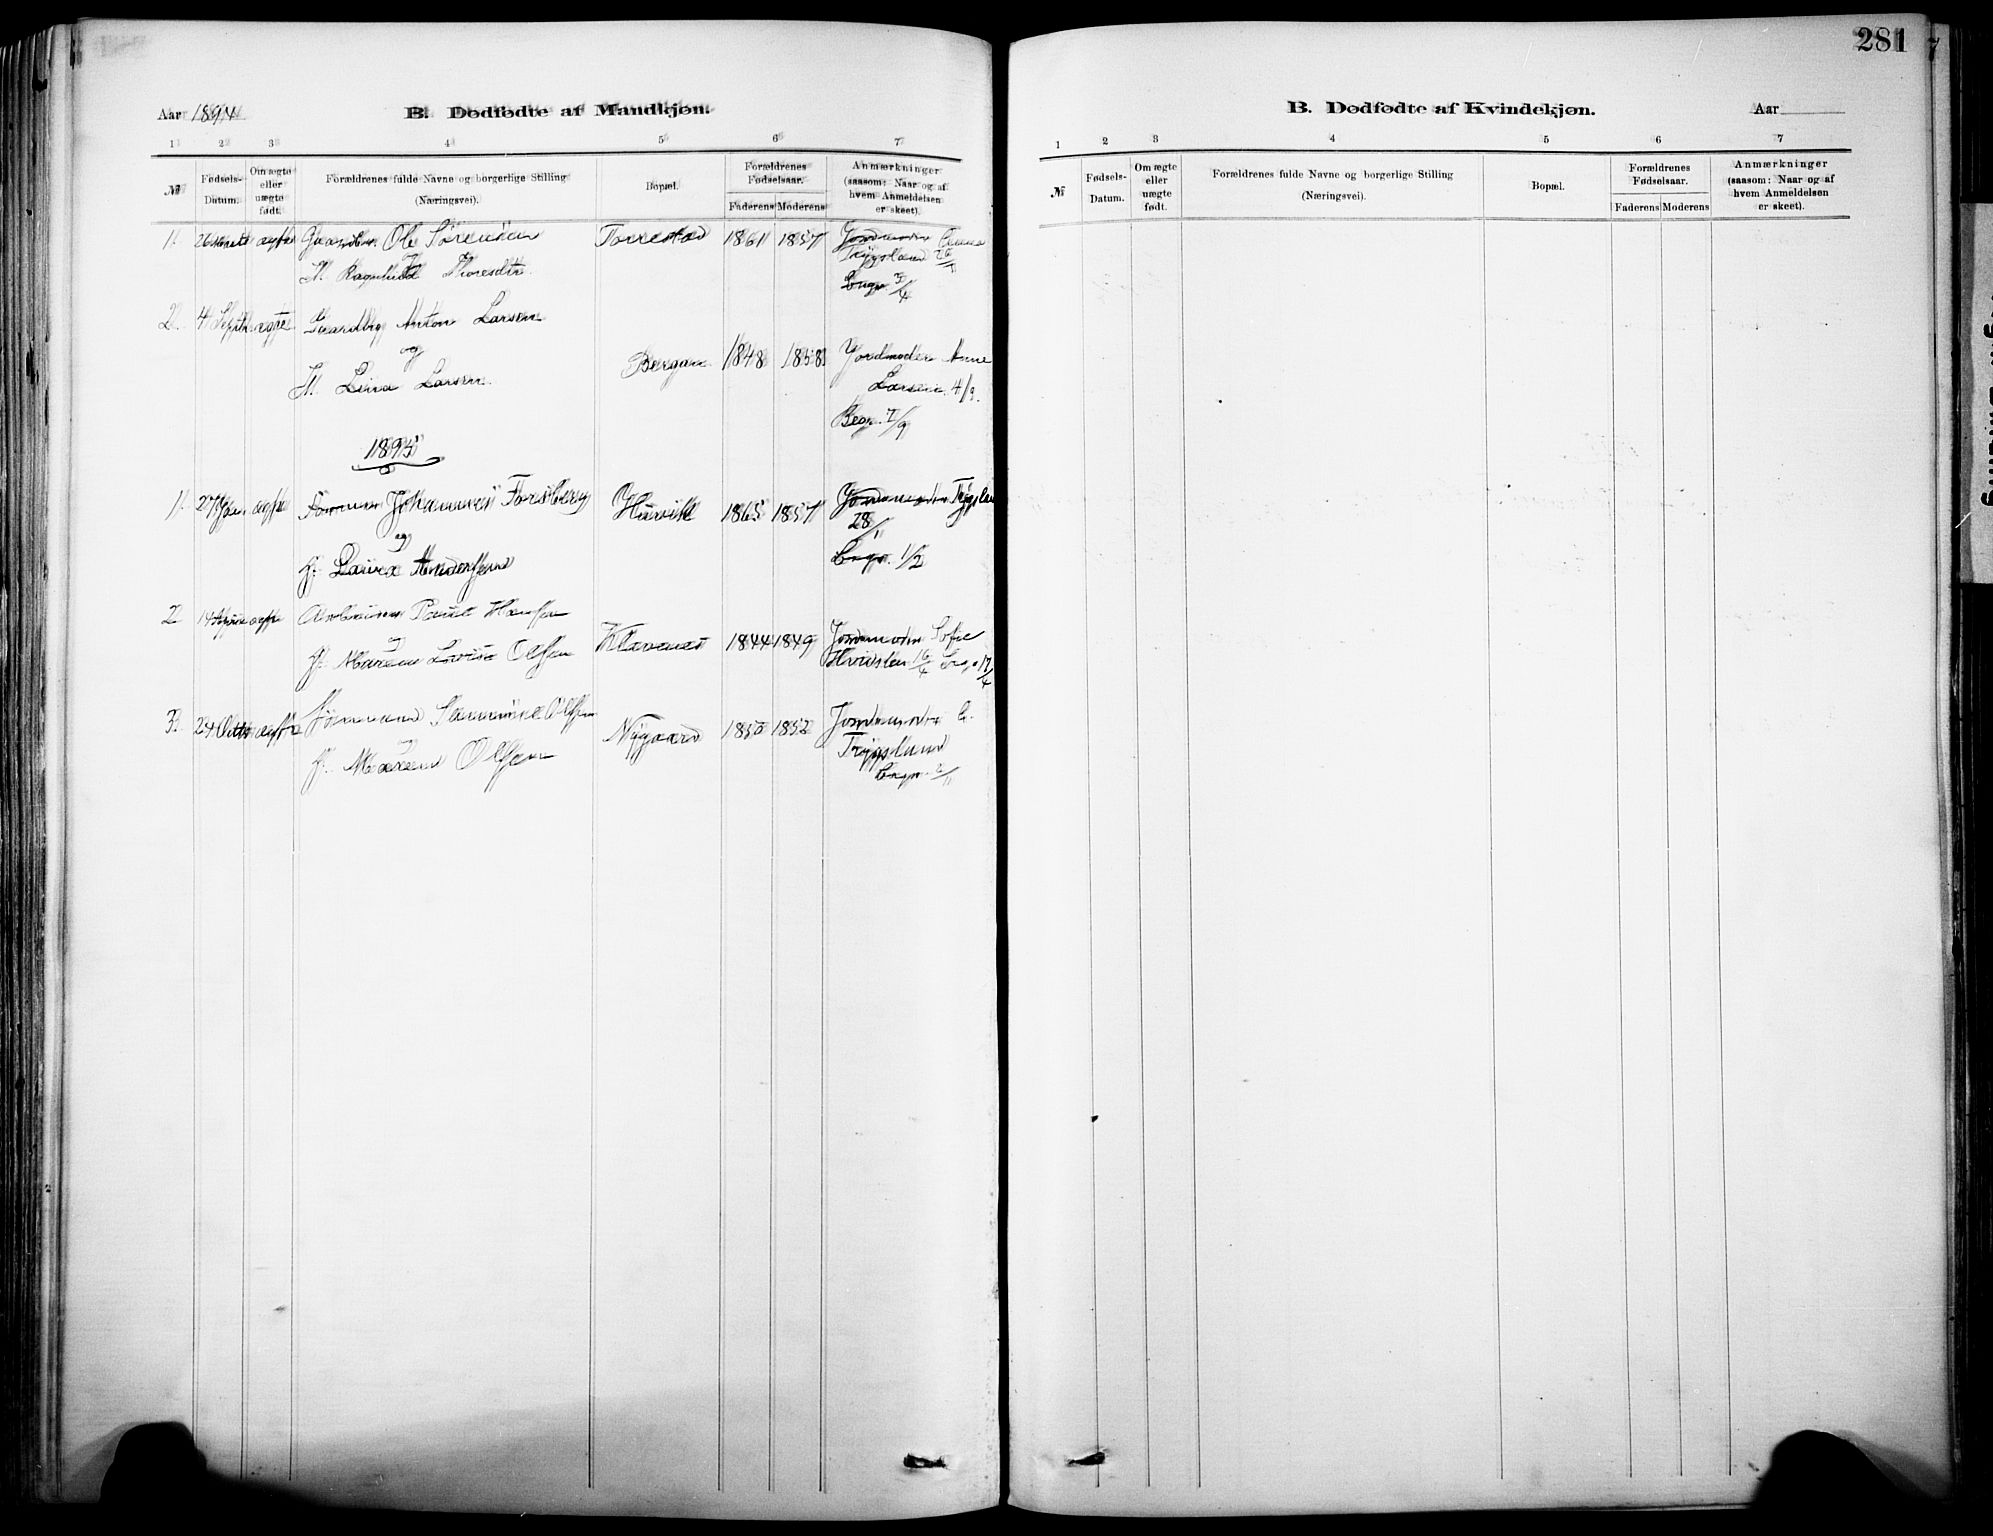 281
Aar 1894
B. Dødfødte af Mandkjøn.
1 2 3 4 5 6 7
№
Fødsels-Datum.
Om ægte eller uægte født.
Forældrenes fulde Navne og borgerlige Stilling
(Næringsvei).
Bopæl.
Forældrenes Fødselsaar.
Faderens Moderens
Anmærkninger
(saasom: Naar og af
hvem Anmeldelsen
er skeet).
1. 26 ægte Ole Sørensen Torrestad 1861 1857 Jordmoder Anna
og
H. Ragnhild Thoresdtr. Trygsland
Begr. 3/4
2. 4 Septb. ægte Gaardbr. Anton Larsen
og
H. Lina Larsen. Bergan 1848 1858 Jordmoder Anne
Larsen 4/9.
Begr. 7/9
1895
1. 27 Jan ægte Johannes Forsberg Husvik 1865 1857 Jordmoder
28/1
og
H. Laura Andersen Begr. 1/2
2 14 April ægte Arbeider Paul Hansen
og
H. Maren Lovise Olsen Klavenes 1844 1849 Jordmoder Sofie
16/4 Begr. 17/4
3. 24 Octb ægte Sømand Olsen
og
H. Maren Olsen Nygaard 1850 1852 Jordmoder
Trygsland
Begr. 2/11
B. Dødfødte af Kvindekjøn.
Aar
1 2 3 4 5 6 7
№
Fødsels-Datum.
Om ægte eller uægte født.
Forældrenes fulde Navne og borgerlige Stilling
(Næringsvei).
Bopæl.
Forældrenes Fødselsaar.
Faderens Moderens
Anmærkninger
(saasom: Naar og af
hvem Anmeldelsen
er skeet).